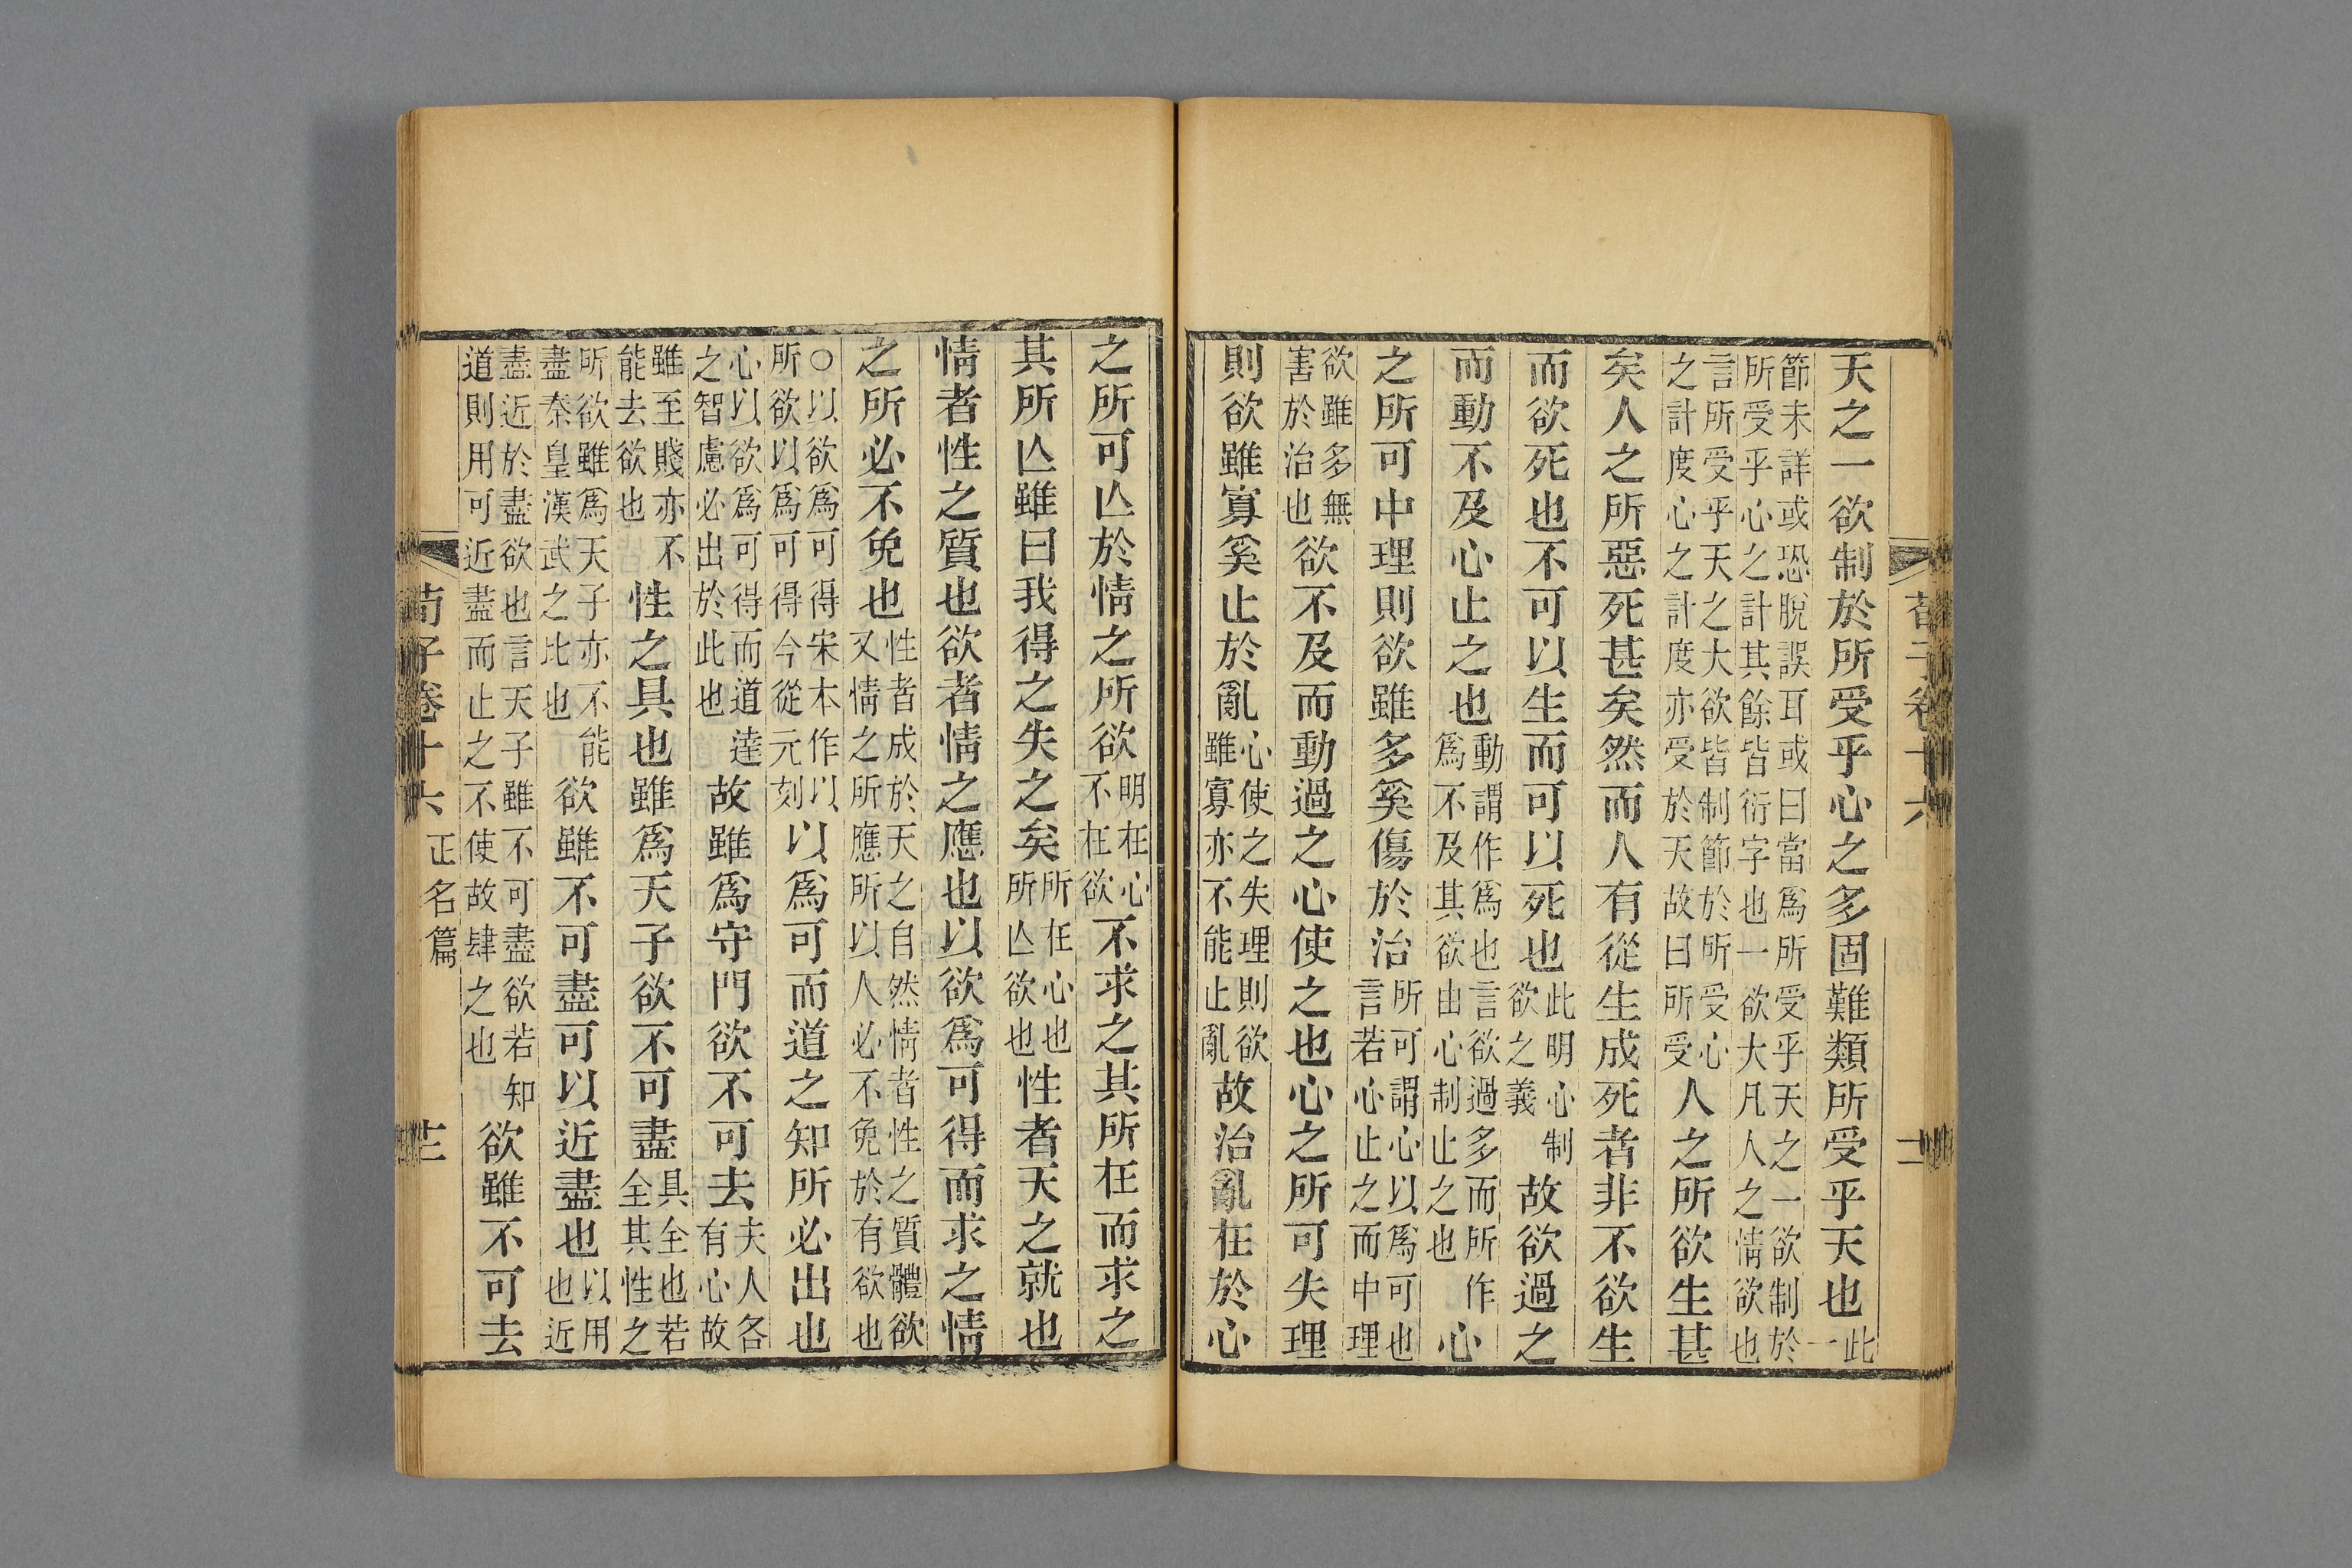 天之一欲制於所受乎心之多固難類所受乎天也此一
節未詳或恐脫誤耳或曰當爲所受乎天之一欲制於
所受乎心之計其餘皆衍字也一欲大凡人之情欲也
言所受乎天之大欲皆制節於所受心
之計度心之計度亦受於天故曰所受人之所欲生甚
矣人之所惡死甚矣然而人有從生成死者非不欲生
而欲死也不可以生而可以死也此明心制欲之義故欲過之
而動不及心止之也動謂作爲也言欲過多而所作
爲不及其欲由心制止之也心
之所可中理則欲雖多奚傷於治所可謂心以爲可也
言若心止之而中理
欲雖多無
害於治也欲不及而動過之心使之也心之所可失理
則欲雖寡奚止於亂心使之失理則欲
雖寡亦不能止亂故治亂在於心
荀子卷十六
之所可亾於情之所欲明在心
不在欲不求之其所在而求之
其所亾雖曰我得之失之矣所在心也
所亾欲也性者天之就也
情者性之質也欲者情之應也以欲爲可得而求之情
之所必不免也性者成於天之自然情者性之質體欲
又情之所應所以人必不免於有欲也
○以欲爲可得宋本作以
所欲以爲可得今從元刻以爲可而道之知所必出也
心以欲爲可得而道達
之智慮必出於此也故雖爲守門欲不可去夫人各
有心故
雖至賤亦不
能去欲也性之具也雖爲天子欲不可盡具全也若
全其性之
所欲雖爲天子亦不能
盡秦皇漢武之比也欲雖不可盡可以近盡也以用
也近
盡近於盡欲也言天子雖不可盡欲若知
道則用可近盡而止之不使故肆之也欲雖不可去
荀子卷十六 正名篇